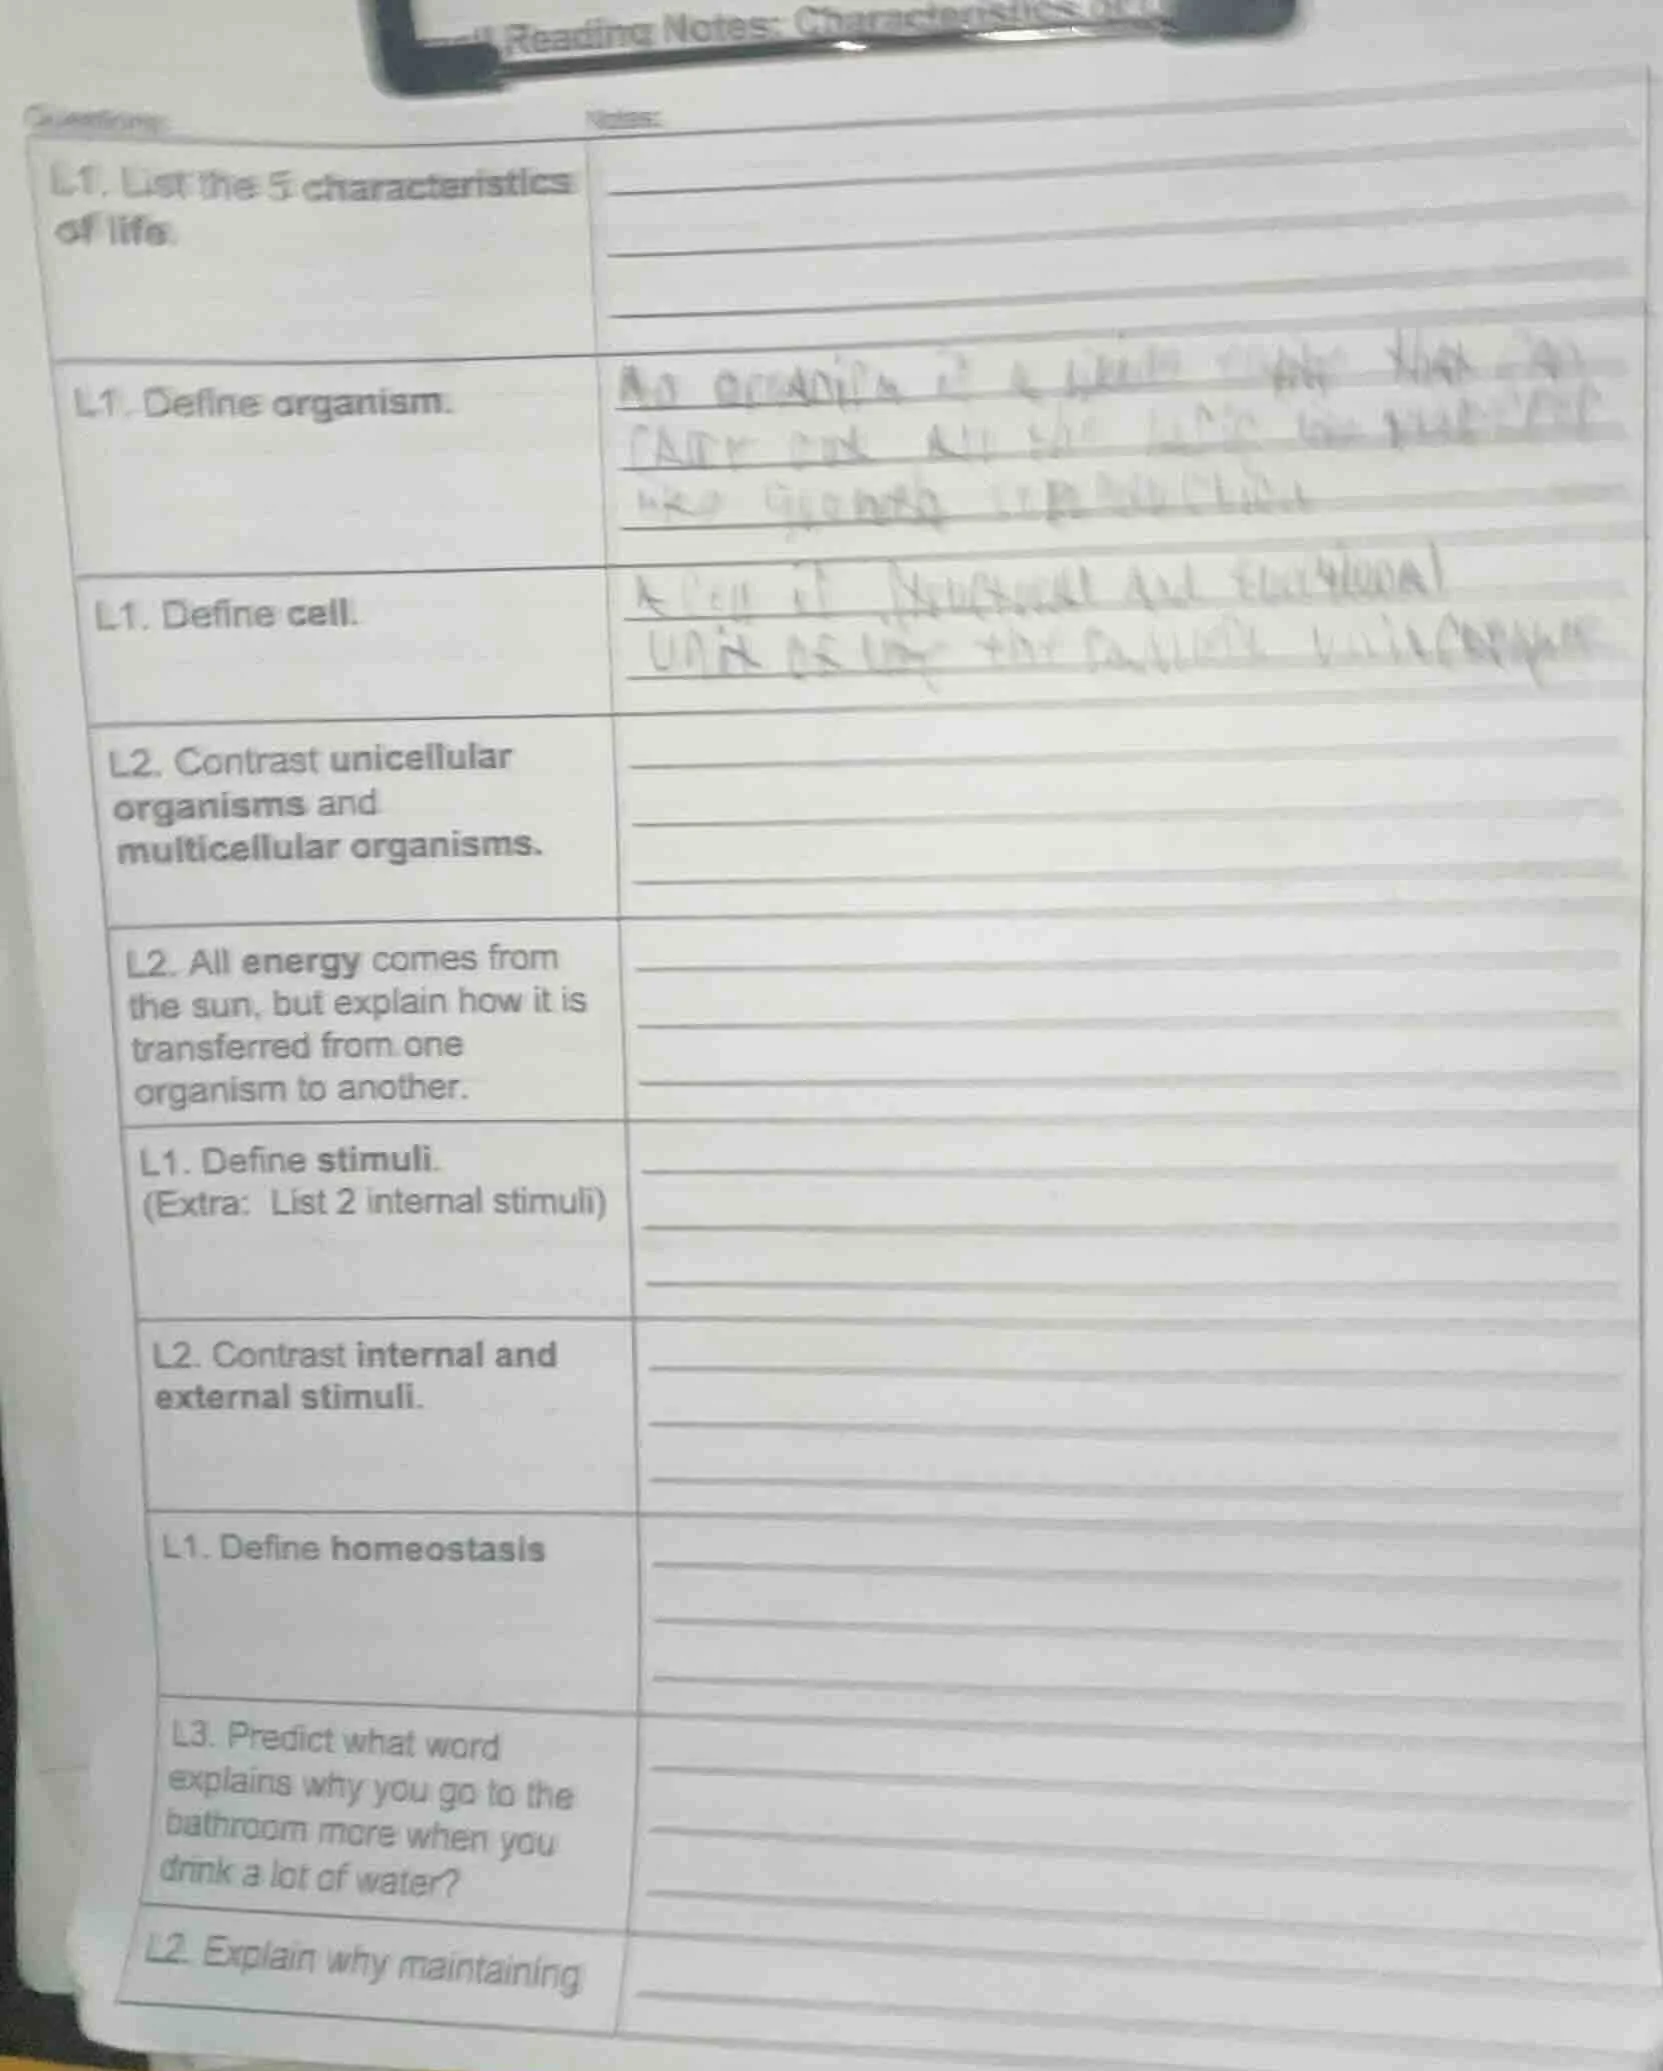 Reading Notes: Characteristics of
Questions:
Notes:
L1. List the 5 characteristics
of life.
L1. Define organism.
An organism is a that can
out all the
growth reproduction
L1. Define cell.
A Cell is structural and functional
Unit of the
L2. Contrast unicellular
organisms and
multicellular organisms.
L2. All energy comes from
the sun, but explain how it is
transferred from one
organism to another.
L1. Define stimuli.
(Extra: List 2 internal stimuli)
L2. Contrast internal and
external stimuli.
L1. Define homeostasis
L3. Predict what word
explains why you go to the
bathroom more when you
drink a lot of water?
L2. Explain why maintaining